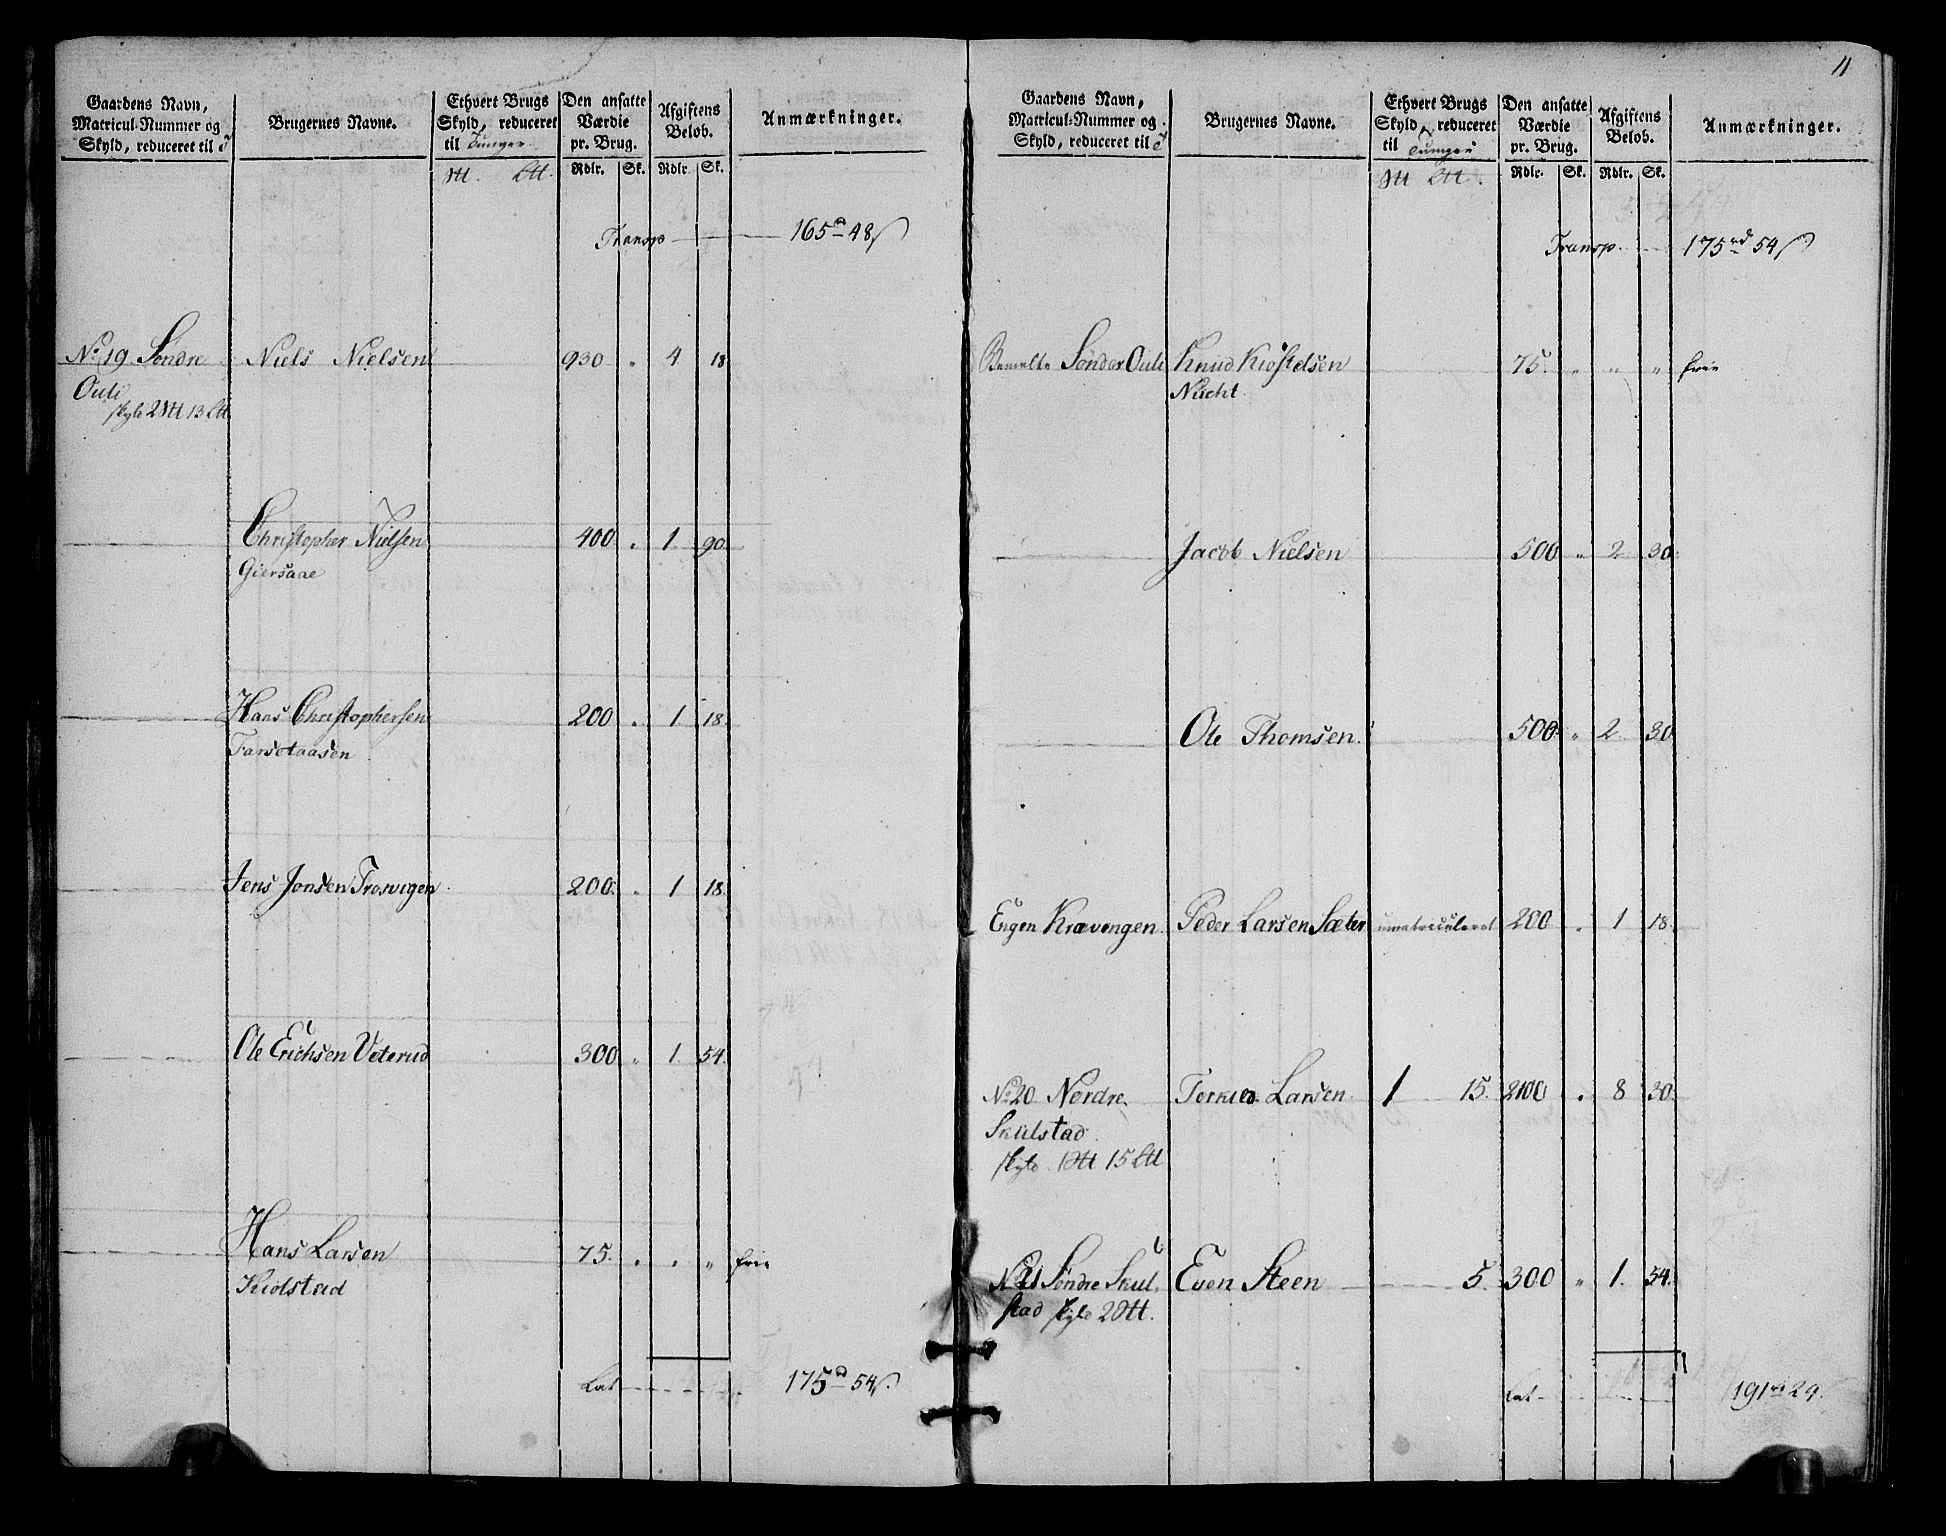 11
Gaardens Navn, Matricul-Nummer og Skyld, reduceret til
Brugernes Navne.
Ethvert Brugs Skyld, reduceret til Tunger
Den ansatte Værdie pr. Brug.
Afgiftens Beløb.
Anmærkninger.
Rdlr. Sk. Rdlr. Sk.
Transp 165 48
No 19 Søndre Niels Nielsen 930 " 4 18
Outi
skyld 2 13
Christopher Nielsen 400 " 1 90
Giersaae
Hans Christophersen 200 " 1 18
Farsetaasen
Jens Jonsen Trosvigen 200 " 1 18
Ole Erichsen Veterud 300 " 1 54
Hans Larsen 75 " " " frie
Kiølstad
Lat 175 54
Gaardens Navn, Matricul-Nummer og Skyld, reduceret til
Brugernes Navne.
Ethvert Brugs Skyld, reduceret til Tunger
Den ansatte Værdie pr. Brug.
Afgiftens Beløb.
Anmærkninger.
Rdlr. Sk. Rdlr. Sk.
Transp. 175 rd 54
Bemelte Sønder Outi Knud Kiøstelsen 75 " " " frie
Nucht
Jacob Nielsen 500 " 2 30
Ole Thomsen 500 " 2 30
Engen Krævengen Peder Larsen Sæter umatriculeret 200 " 1 18
No 20 Nordre Torkild Larsen 1 15 2100 " 8 30
Skulstad
skyld 1 15
No 21 Søndre Skul- Even Steen 5 300 " 1 54
stad skyld 2
Lat 191 24